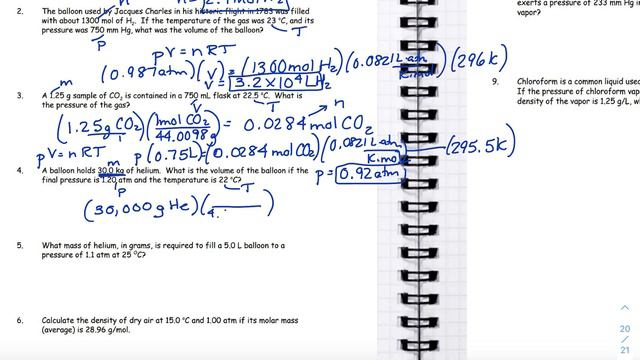 exerts a pressure of 233 mm Hg in
vapor?
2. The balloon used by Jacques Charles in his historic flight in 1783 was filled
with about 1300 mol of H₂. If the temperature of the gas was 23 °C, and its
pressure was 750 mm Hg, what was the volume of the balloon?
T
P
PV = nRT
(0.987 atm)(V) = (1300 mol H₂)(0.0821 L atm / K·mol)(296 K)
V = 3.2 × 10⁴ L H₂
m
V
T
n
3. A 1.25 g sample of CO₂ is contained in a 750 mL flask at 22.5 °C. What is
the pressure of the gas?
(1.25 g CO₂ / 1)(mol CO₂ / 44.0098 g) = 0.0284 mol CO₂
PV = nRT P(0.75L) = (0.0284 mol CO₂)(0.0821 L atm / K·mol)(295.5 K)
P = 0.92 atm
m
4. A balloon holds 30.0 kg of helium. What is the volume of the balloon if the
final pressure is 1.20 atm and the temperature is 22 °C?
P
T
(30,000 g He)( / 4.
5. What mass of helium, in grams, is required to fill a 5.0 L balloon to a
pressure of 1.1 atm at 25 °C?
6. Calculate the density of dry air at 15.0 °C and 1.00 atm if its molar mass
(average) is 28.96 g/mol.
9. Chloroform is a common liquid used
If the pressure of chloroform vap
density of the vapor is 1.25 g/L, w
20
/
21